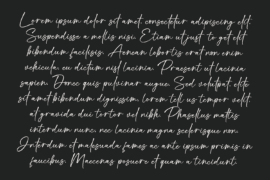 Lorem ipsum dolor sit amet consectetur adipiscing elit.
Suspendisse a mollis nisi. Etiam ut justo eget elit
bibendum facilisis. Aenean lobortis erat non enim
vehicula, eu dictum nisl lacinia. Praesent ut lacinia
sapien. Donec quis pulvinar augue. Sed volutpat elit
sit amet bibendum dignissim, lorem tellus tempor velit,
at gravida dui tortor vel nibh. Phasellus mattis
interdum nunc, nec lacinia magna scelerisque non.
Interdum et malesuada fames ac ante ipsum primis in
faucibus. Maecenas posuere et quam a tincidunt.